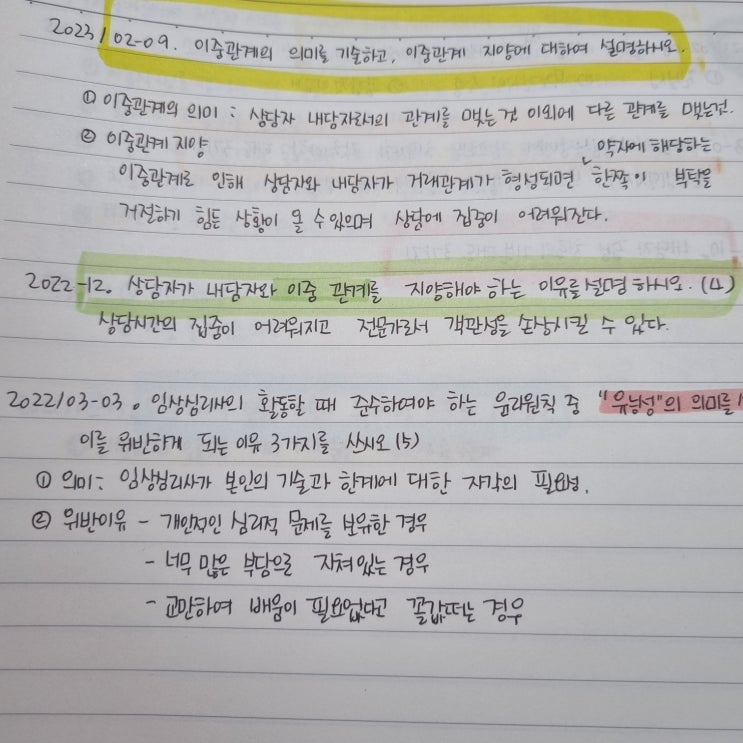 2023/02-09. 이중관계의 의미를 기술하고, 이중관계 지양에 대하여 설명하시오.
① 이중관계의 의미 : 상담자 내담자로서의 관계를 맺는것 이외에 다른 관계를 맺는것.
② 이중관계 지양
약자에 해당하는
이중관계로 인해 상담자와 내담자가 거래관계가 형성되면 한쪽이 부탁을
거절하기 힘든 상황이 올 수 있으며 상담에 집중이 어려워진다.
2022-12. 상담자가 내담자와 이중 관계를 지양해야 하는 이유를 설명 하시오. (4)
상담시간의 집중이 어려워지고 전문가로서 객관성을 손상시킬 수 있다.
2022/03-03. 임상심리사의 활동할 때 준수하여야 하는 윤리원칙 중 "유능성"의 의미를
이를 위반하게 되는 이유 3가지를 쓰시오 (5)
① 의미 : 임상심리사가 본인의 기술과 한계에 대한 자각의 필요성.
② 위반이유 - 개인적인 심리적 문제를 보유한 경우
- 너무 많은 부담으로 지쳐있는 경우
- 교만하여 배움이 필요없다고 꼴값떠는 경우